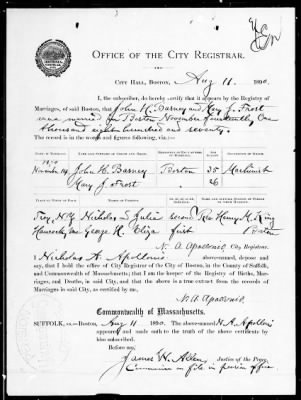 OFFICE OF THE CITY REGISTRAR.
CITY HALL, BOSTON, Aug 11. 1890.
I, the subscriber, do hereby certify that it appears by the Registry of
Marriages, of said Boston, that John H. Barney and Mary J. Frost
was married in Boston November fourteenth, One
thousand eight hundred and seventy.
The record is in the words and figures following, viz.:
1870
November 14 John H. Barney Boston 35 Machinist
Mary J. Frost 26
Troy, N.Y. Nicholas and Julia second Rev. Henry M. King
George H. Eliza first Boston
N. A. Apollonio, City Registrar.
I Nicholas A. Apollonio above-named, depose and
say, that I hold the office of City Registrar of the City of Boston, in the County of Suffolk,
and Commonwealth of Massachusetts; that I am the keeper of the Registry of Births, Marriages,
and Deaths, in said City, and that the above is a true extract from the records of
Marriages in said City, as certified by me,
N. A. Apollonio.
Commonwealth of Massachusetts.
SUFFOLK, ss.—Boston, Aug 11 1890. The above-named N. A. Apollonio
appeared and made oath to the truth of the above certificate
by him subscribed.
Before me,
James H. Allen, Justice of the Peace.
Commission on file in pension office.